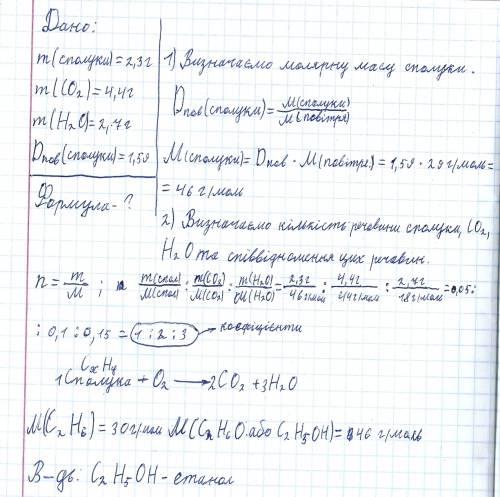 Дано:
m(сполуки)=2,3г
m(CO₂)=4,4г
m(H₂O)=2,7г
Dпов(сполуки)=1,59
Формула-?
1) Визначаємо молярну масу сполуки.
Dпов(сполуки)=M(сполуки)/M(повітря)
M(сполуки)=Dпов · M(повітря)=1,59 · 29г/моль=
=46г/моль
2) Визначаємо кількість речовини сполуки, CO₂,
H₂O та співвідношення цих речовин.
n=m/M ; m(спол)/M(спол) : m(CO₂)/M(CO₂) : m(H₂O)/M(H₂O)=2,3г/46г/мол : 4,4г/44г/мол : 2,7г/18г/мол=0,05:
: 0,1 : 0,15 = 1 : 2 : 3 коефіцієнти
CxHy
1Сполука + O₂ → 2CO₂ + 3H₂O
M(C₂H₆)=30г/моль M(C₂H₆O або C₂H₅OH)=46г/моль
В-дь: C₂H₅OH - етанол